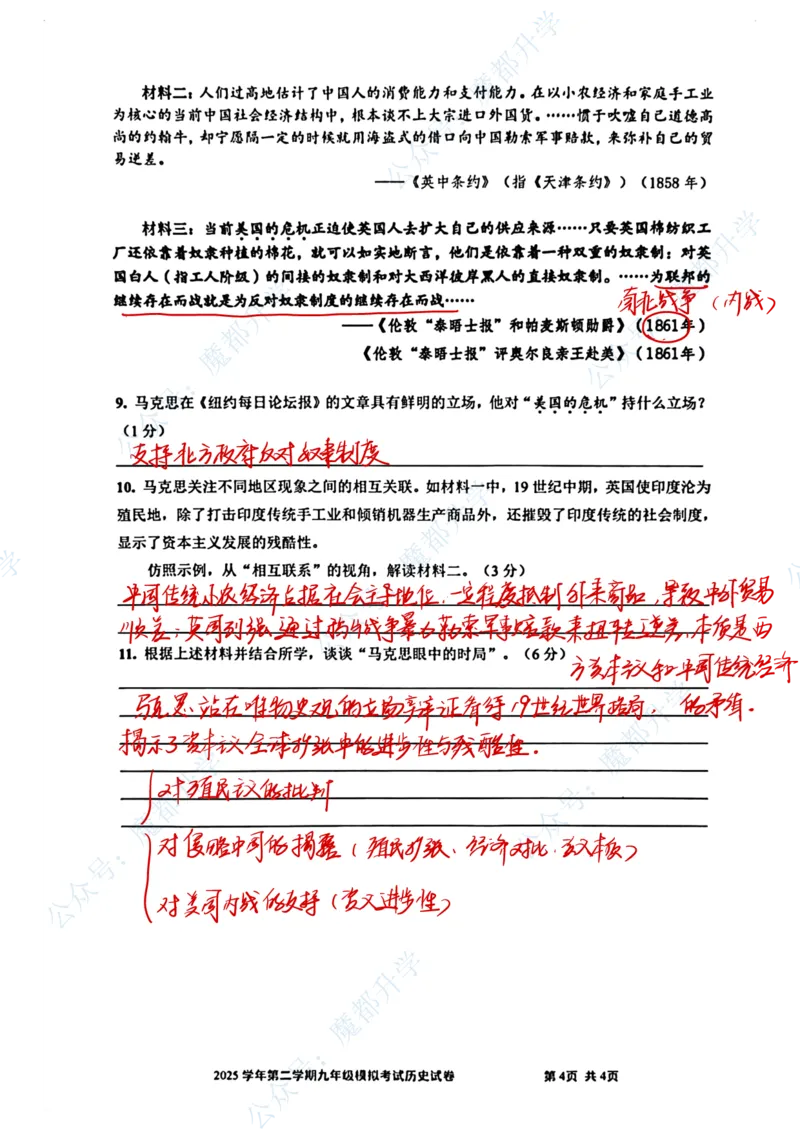 材料二：人们过高地估计了中国人的消费能力和支付能力。在以小农经济和家庭手工业
为核心的当前中国社会经济结构中，根本谈不上大宗进口外国货。……惯于吹嘘自己道德高
尚的约翰牛，却宁愿隔一定的时候就用海盗式的借口向中国勒索军事赔款，来弥补自己的贸
易逆差。
——《英中条约》（指《天津条约》）（1858年）
材料三：当前美国的危机正迫使英国人去扩大自己的供应来源……只要英国棉纺织工
厂还依靠着奴隶种植的棉花，就可以如实地断言，他们是依靠着一种双重的奴隶制：对英
国白人（指工人阶级）的间接的奴隶制和对大西洋彼岸黑人的直接奴隶制。……为联邦的
继续存在而战就是为反对奴隶制度的继续存在而战……
南北战争（内战）
——《伦敦“泰晤士报”和帕麦斯顿勋爵》（1861年）
《伦敦“泰晤士报”评奥尔良亲王赴美》（1861年）
9. 马克思在《纽约每日论坛报》的文章具有鲜明的立场，他对“美国的危机”持什么立场？
（1分）
支持北方政府反对奴隶制度
10. 马克思关注不同地区现象之间的相互关联。如材料一中，19世纪中期，英国使印度沦为
殖民地，除了打击印度传统手工业和倾销机器生产商品外，还摧毁了印度传统的社会制度，
显示了资本主义发展的残酷性。
仿照示例，从“相互联系”的视角，解读材料二。（3分）
中国传统小农经济占据社会主导地位，一定程度抵制外来商品，导致中外贸易
顺差；英国列强通过鸦片战争暴力勒索军事赔款来扭转逆差，本质是西
方资本主义和中国传统经济
的矛盾.
11. 根据上述材料并结合所学，谈谈“马克思眼中的时局”。（6分）
马克思站在唯物史观的立场辩证看待19世纪世界格局.
揭示了资本主义全球扩张中的进步性与残酷性.
对殖民主义的批判
对侵略中国的揭露（殖民扩张、经济对比、主义本质）
对美国内战的支持（意义进步性）
2025学年第二学期九年级模拟考试历史试卷 第4页 共4页
公众号：魔都升学